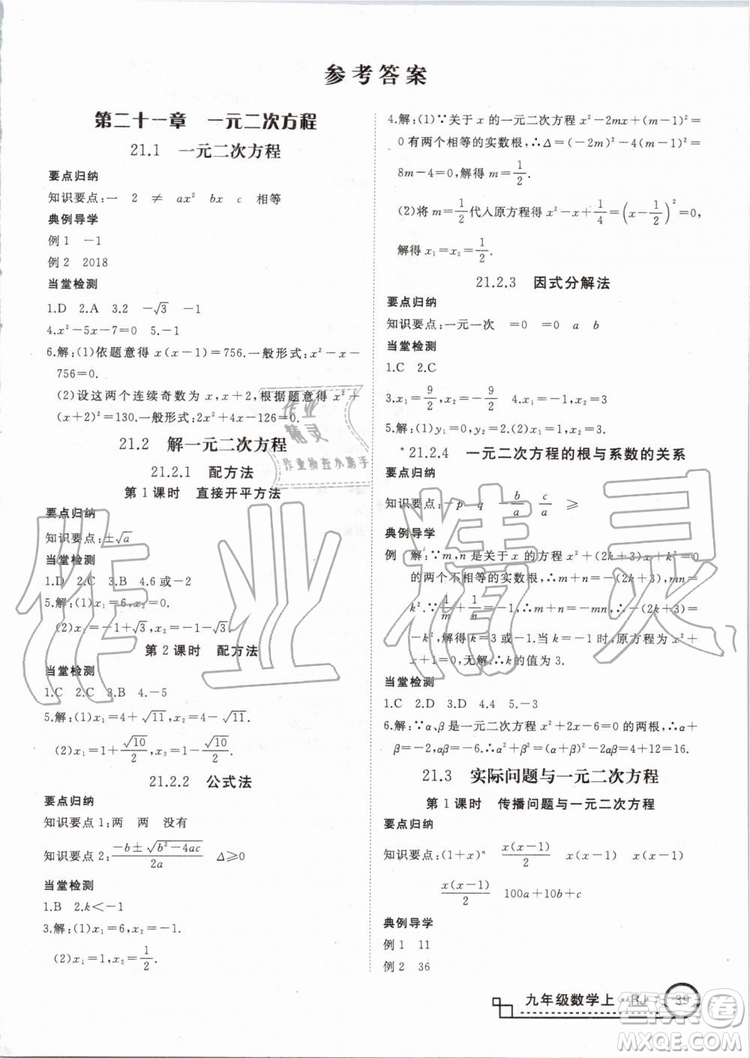 参考答案
第二十一章 一元二次方程
21.1 一元二次方程
要点归纳
知识要点:一 2 ≠ ax² bx c 相等
典例导学
例1 -1
例2 2018
当堂检测
1.D 2.A 3.2 -√3 -1
4.x²-5x-7=0 5.-1
6.解:(1)依题意得x(x-1)=756.一般形式:x²-x-
756=0.
(2)设这两个连续奇数为x,x+2,根据题意得x²+
(x+2)²=130.一般形式:2x²+4x-126=0.
21.2 解一元二次方程
21.2.1 配方法
第1课时 直接开平方法
要点归纳
知识要点:±√a
当堂检测
1.D 2.C 3.D 4.6或-2
5.解:(1)x₁=6,x₂=
第2课时 配方法
当堂检测
1.C 2.C 4.-5
5.解:(1)x₁=4+√11,x₂=4-√11.
(2)x₁=1+√10/2,x₂=1-√10/2.
21.2.2 公式法
要点归纳
知识要点1:两 两 没有
知识要点2:(-b±√(b²-4ac))/2a Δ≥0
当堂检测
1.B 2.k<-1
3.解:(1)x₁=6,x₂=-1.
(2)x₁=1,x₂=1/2.
4.解:(1)∵关于x的一元二次方程x²-2mx+(m-1)²=
0有两个相等的实数根,∴Δ=(-2m)²-4(m-1)²=
8m-4=0,解得m=1/2.
(2)将m=1/2代入原方程得x²-x+1/4=(x-1/2)²=0,
解得x₁=x₂=1/2.
21.2.3 因式分解法
要点归纳
知识要点:一元一次 =0 =0 a b
当堂检测
1.C 2.C
3.x₁=9/2,x₂=-9/2 4.x₁=0,x₂=
5.解:(1)y₁=0,y₂=
*21.2.4 一元二次方程的根与系数的关系
要点归纳
知识要点:-p q -b/a c/a ≥
典例导学
例 解:∵m,n是关于x的一元二次方程x²+(2k+3)x+k²=0
的两个不相等的实数根,∴m+n=-(2k+3),mn=
k².∵1/m+1/n=
-1,解得
方程无解,∴k的值为3.
当堂检测
1.C 2.D 3.D 4.-2 5.-3
6.解:∵α,β是一元二次方程x²+2x-6=0的两根,∴α+
β=-2,αβ=-6.∴α²+β²=(α+β)²-2αβ=4+12=16.
21.3 实际问题与一元二次方程
第1课时 传播问题与一元二次方程
要点归纳
知识要点:(1+x)ⁿ x(x-1)/2 x(x-1) x(x-1)
x(x-1)/2 10a+b 100a+10b+c
典例导学
例1 11
例2 36
九年级数学上·RJ 39
作业精灵
作业
精灵
作业检查小助手
答案圈
MXQE.COM